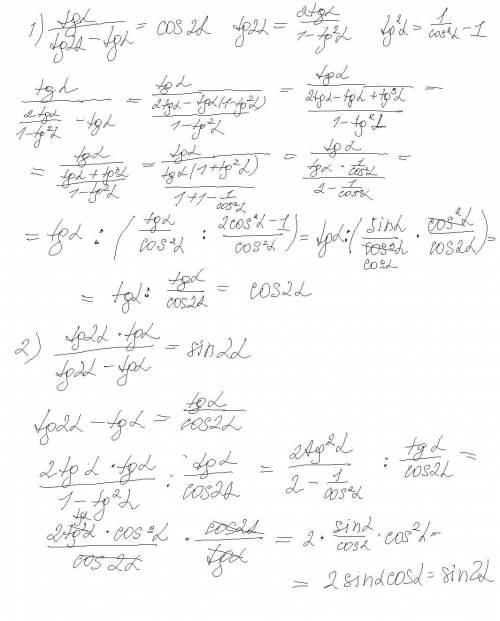 1) tgα/(tg2α - tgα) = cos2α   tg2α = 2tgα/(1-tg²α)   tg²α = 1/cos²α - 1
tgα/(2tgα/(1-tg²α) - tgα) = tgα/((2tgα - tgα(1-tg²α))/(1-tg²α)) = tgα/((2tgα-tgα+tg³α)/(1-tg²α)) =
= tgα/((tgα+tg³α)/(1-tg²α)) = tgα/(tgα(1+tg²α)/(1+1-1/cos²α)) = tgα/((tgα · 1/cos²α)/(2-1/cos²α)) =
= tgα : (tgα/cos²α : (2cos²α-1)/cos²α) = tgα : (sinα/(cos²α cosα) · cos²α/cos2α) =
= tgα : tgα/cos2α = cos2α
2) (tg2α · tgα)/(tg2α - tgα) = sin2α
tg2α - tgα = tgα/cos2α
(2tgα · tgα)/(1-tg²α) : tgα/cos2α = 2tg²α/(2 - 1/cos²α) : tgα/cos2α =
tgα
(2tg²α · cos²α)/cos2α · cos2α/tgα = 2 · sinα/cosα · cos²α =
= 2sinαcosα = sin2α